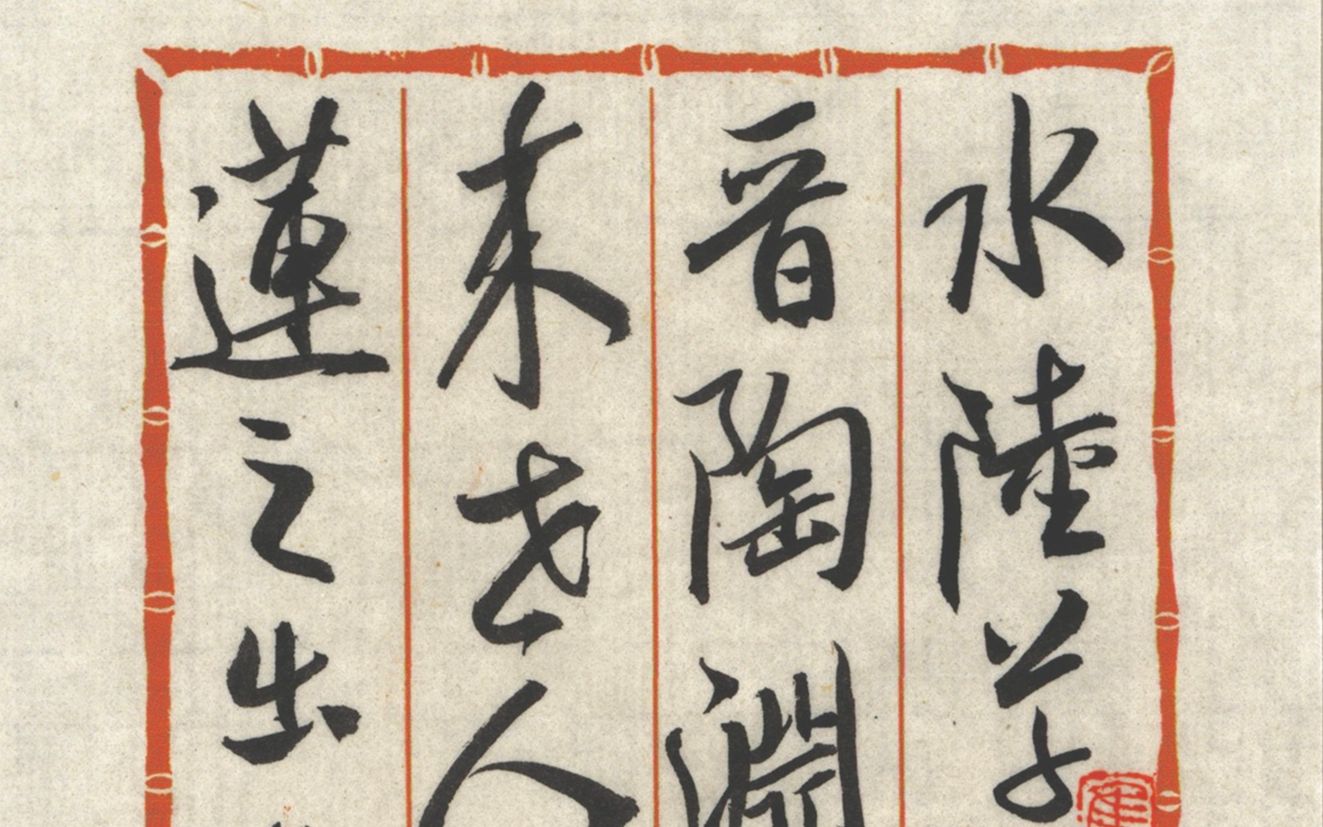 水陸草
晋陶淵
来世人
蓮之出